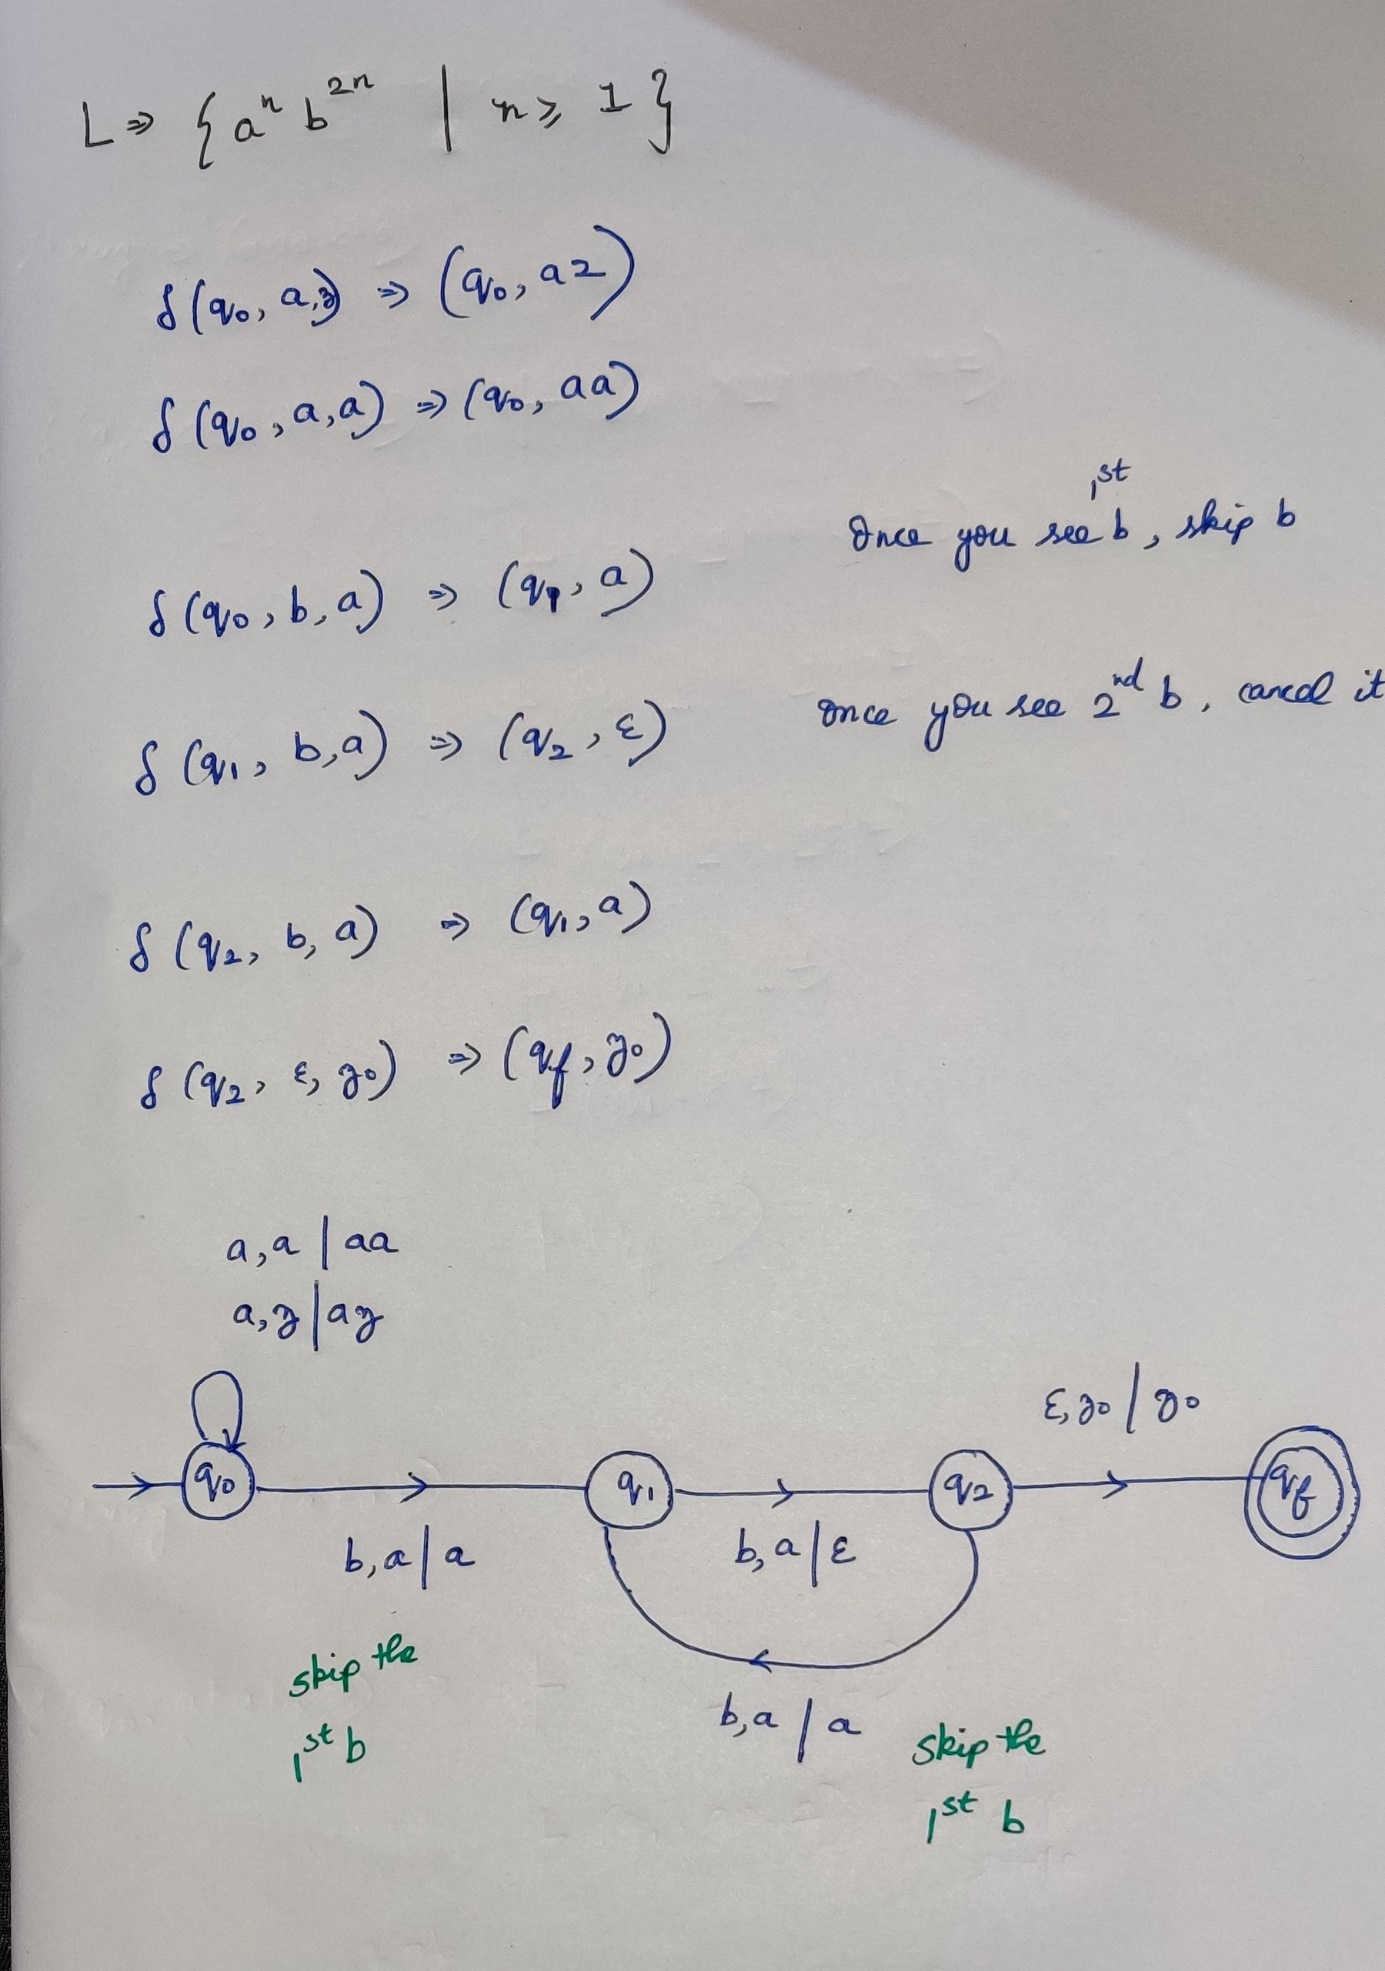 L ⇒ { aⁿ b²ⁿ | n ⩾ 1 }
δ(q₀, a,z) ⇒ (q₀, az)
δ(q₀, a,a) ⇒ (q₀, aa)
δ(q₀, b, a) ⇒ (q₁, a) Once you see 1st b, skip b
δ(q₁, b,a) ⇒ (q₂, ε) once you see 2nd b, cancel it
δ(q₂, b, a) ⇒ (q₁, a)
δ(q₂, ε, z₀) ⇒ (qf, z₀)
a,a | aa
a,z | az
ε, z₀ | z₀
q₀ q₁ q₂ qf
b,a | a b,a | ε
skip the
1st b
b,a | a
skip the
1st b